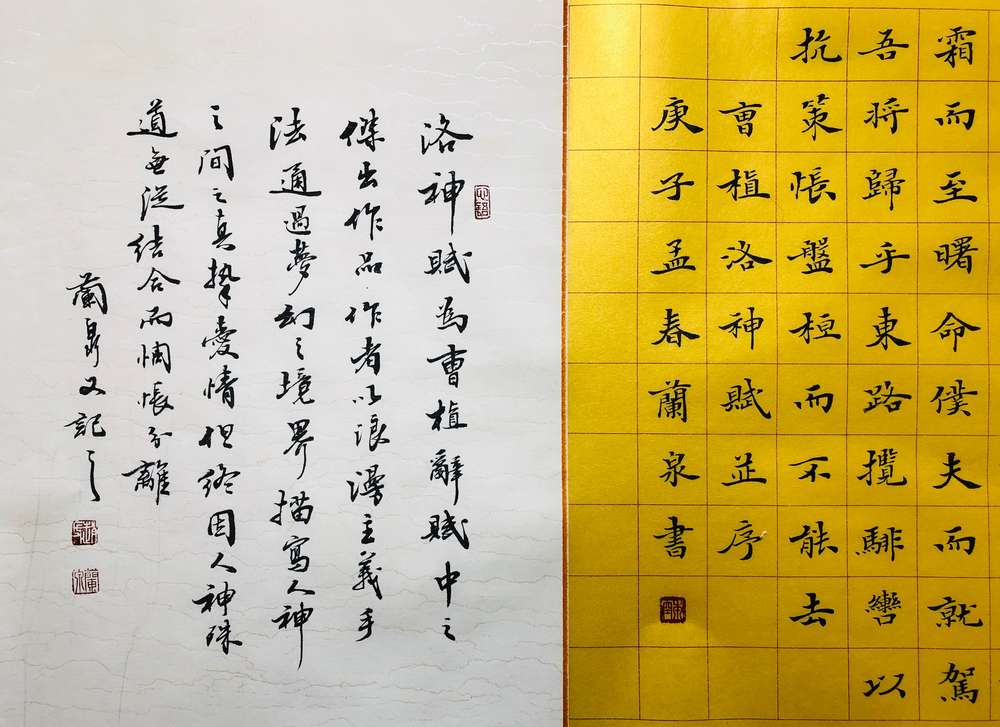 霜而至曙命僕夫而就駕
吾將歸乎東路攬騑轡以
抗策悵盤桓而不能去
曹植洛神賦並序
庚子孟春蘭泉書
洛神賦為曹植辭賦中之
傑出作品作者以浪漫主義手
法通過夢幻之境界描寫人神
之間之真摯愛情但終因人神殊
道無從結合而惆悵分離
蘭泉又記之